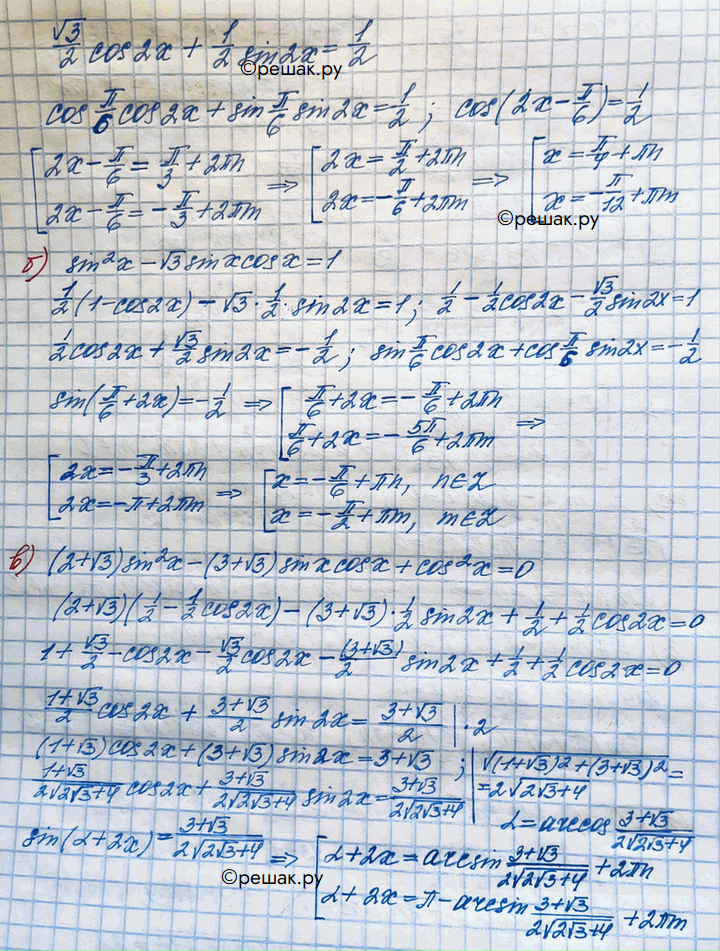 √3/2 cos2x + 1/2 sin2x = 1/2
©решак.ру
cos π/6 cos2x + sin π/6 sin2x = 1/2 ; cos(2x - π/6) = 1/2
[2x - π/6 = π/3 + 2πn ⇒ [2x = π/2 + 2πn ⇒ [x = π/4 + πn
2x - π/6 = -π/3 + 2πm 2x = -π/6 + 2πm x = -π/12 + πm
©решак.ру
б) sin²x - √3 sinxcosx = 1
1/2(1-cos2x) - √3 · 1/2 · sin2x = 1 ; 1/2 - 1/2 cos2x - √3/2 sin2x = 1
1/2 cos2x + √3/2 sin2x = -1/2 ; sin π/6 cos2x + cos π/6 sin2x = -1/2
sin(π/6 + 2x) = -1/2 ⇒ [π/6 + 2x = -π/6 + 2πn ⇒
π/6 + 2x = -5π/6 + 2πm
[2x = -π/3 + 2πn ⇒ [x = -π/6 + πn, n∈Z
2x = -π + 2πm x = -π/2 + πm, m∈Z
в) (2+√3)sin²x - (3+√3)sinxcosx + cos²x = 0
(2+√3)(1/2 - 1/2 cos2x) - (3+√3) · 1/2 sin2x + 1/2 + 1/2 cos2x = 0
1 + √3/2 - cos2x - √3/2 cos2x - (3+√3)/2 sin2x + 1/2 + 1/2 cos2x = 0
(1+√3)/2 cos2x + (3+√3)/2 sin2x = (3+√3)/2 | · 2
(1+√3)cos2x + (3+√3)sin2x = 3+√3 ; | √((1+√3)2 + (3+√3)2) =
(1+√3)/(2√(2√3+4)) cos2x + (3+√3)/(2√(2√3+4)) sin2x = (3+√3)/(2√(2√3+4)) | = 2√(2√3+4)
α = arccos (3+√3)/(2√(2√3+4))
sin(α+2x) = (3+√3)/(2√(2√3+4)) ⇒ [α+2x = arcsin (3+√3)/(2√(2√3+4)) + 2πn
α+2x = π - arcsin (3+√3)/(2√(2√3+4)) + 2πm
©решак.ру